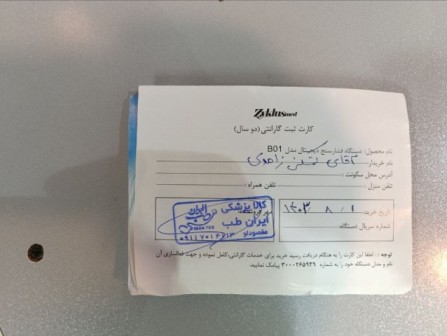 Zyklusmed
کارت ثبت گارانتی (دو سال)
نام محصول: دستگاه فشارسنج دیجیتال مدل B01
نام خریدار: آقای
آدرس محل سکونت:
تلفن منزل: تلفن همراه:
تاریخ خرید: ۱۴۰۳ / ۸ / ۱
شماره سریال دستگاه:
کالا پزشکی
ایران طب
توجه: لطفا این کارت را به هنگام دریافت رسید خرید برای خدمات گارانتی، کامل نموده و جهت فعالسازی آن
نام و مدل دستگاه خود را به شماره ۳۰۰۰۲۶۵۹۲۹ پیامک نمایید.